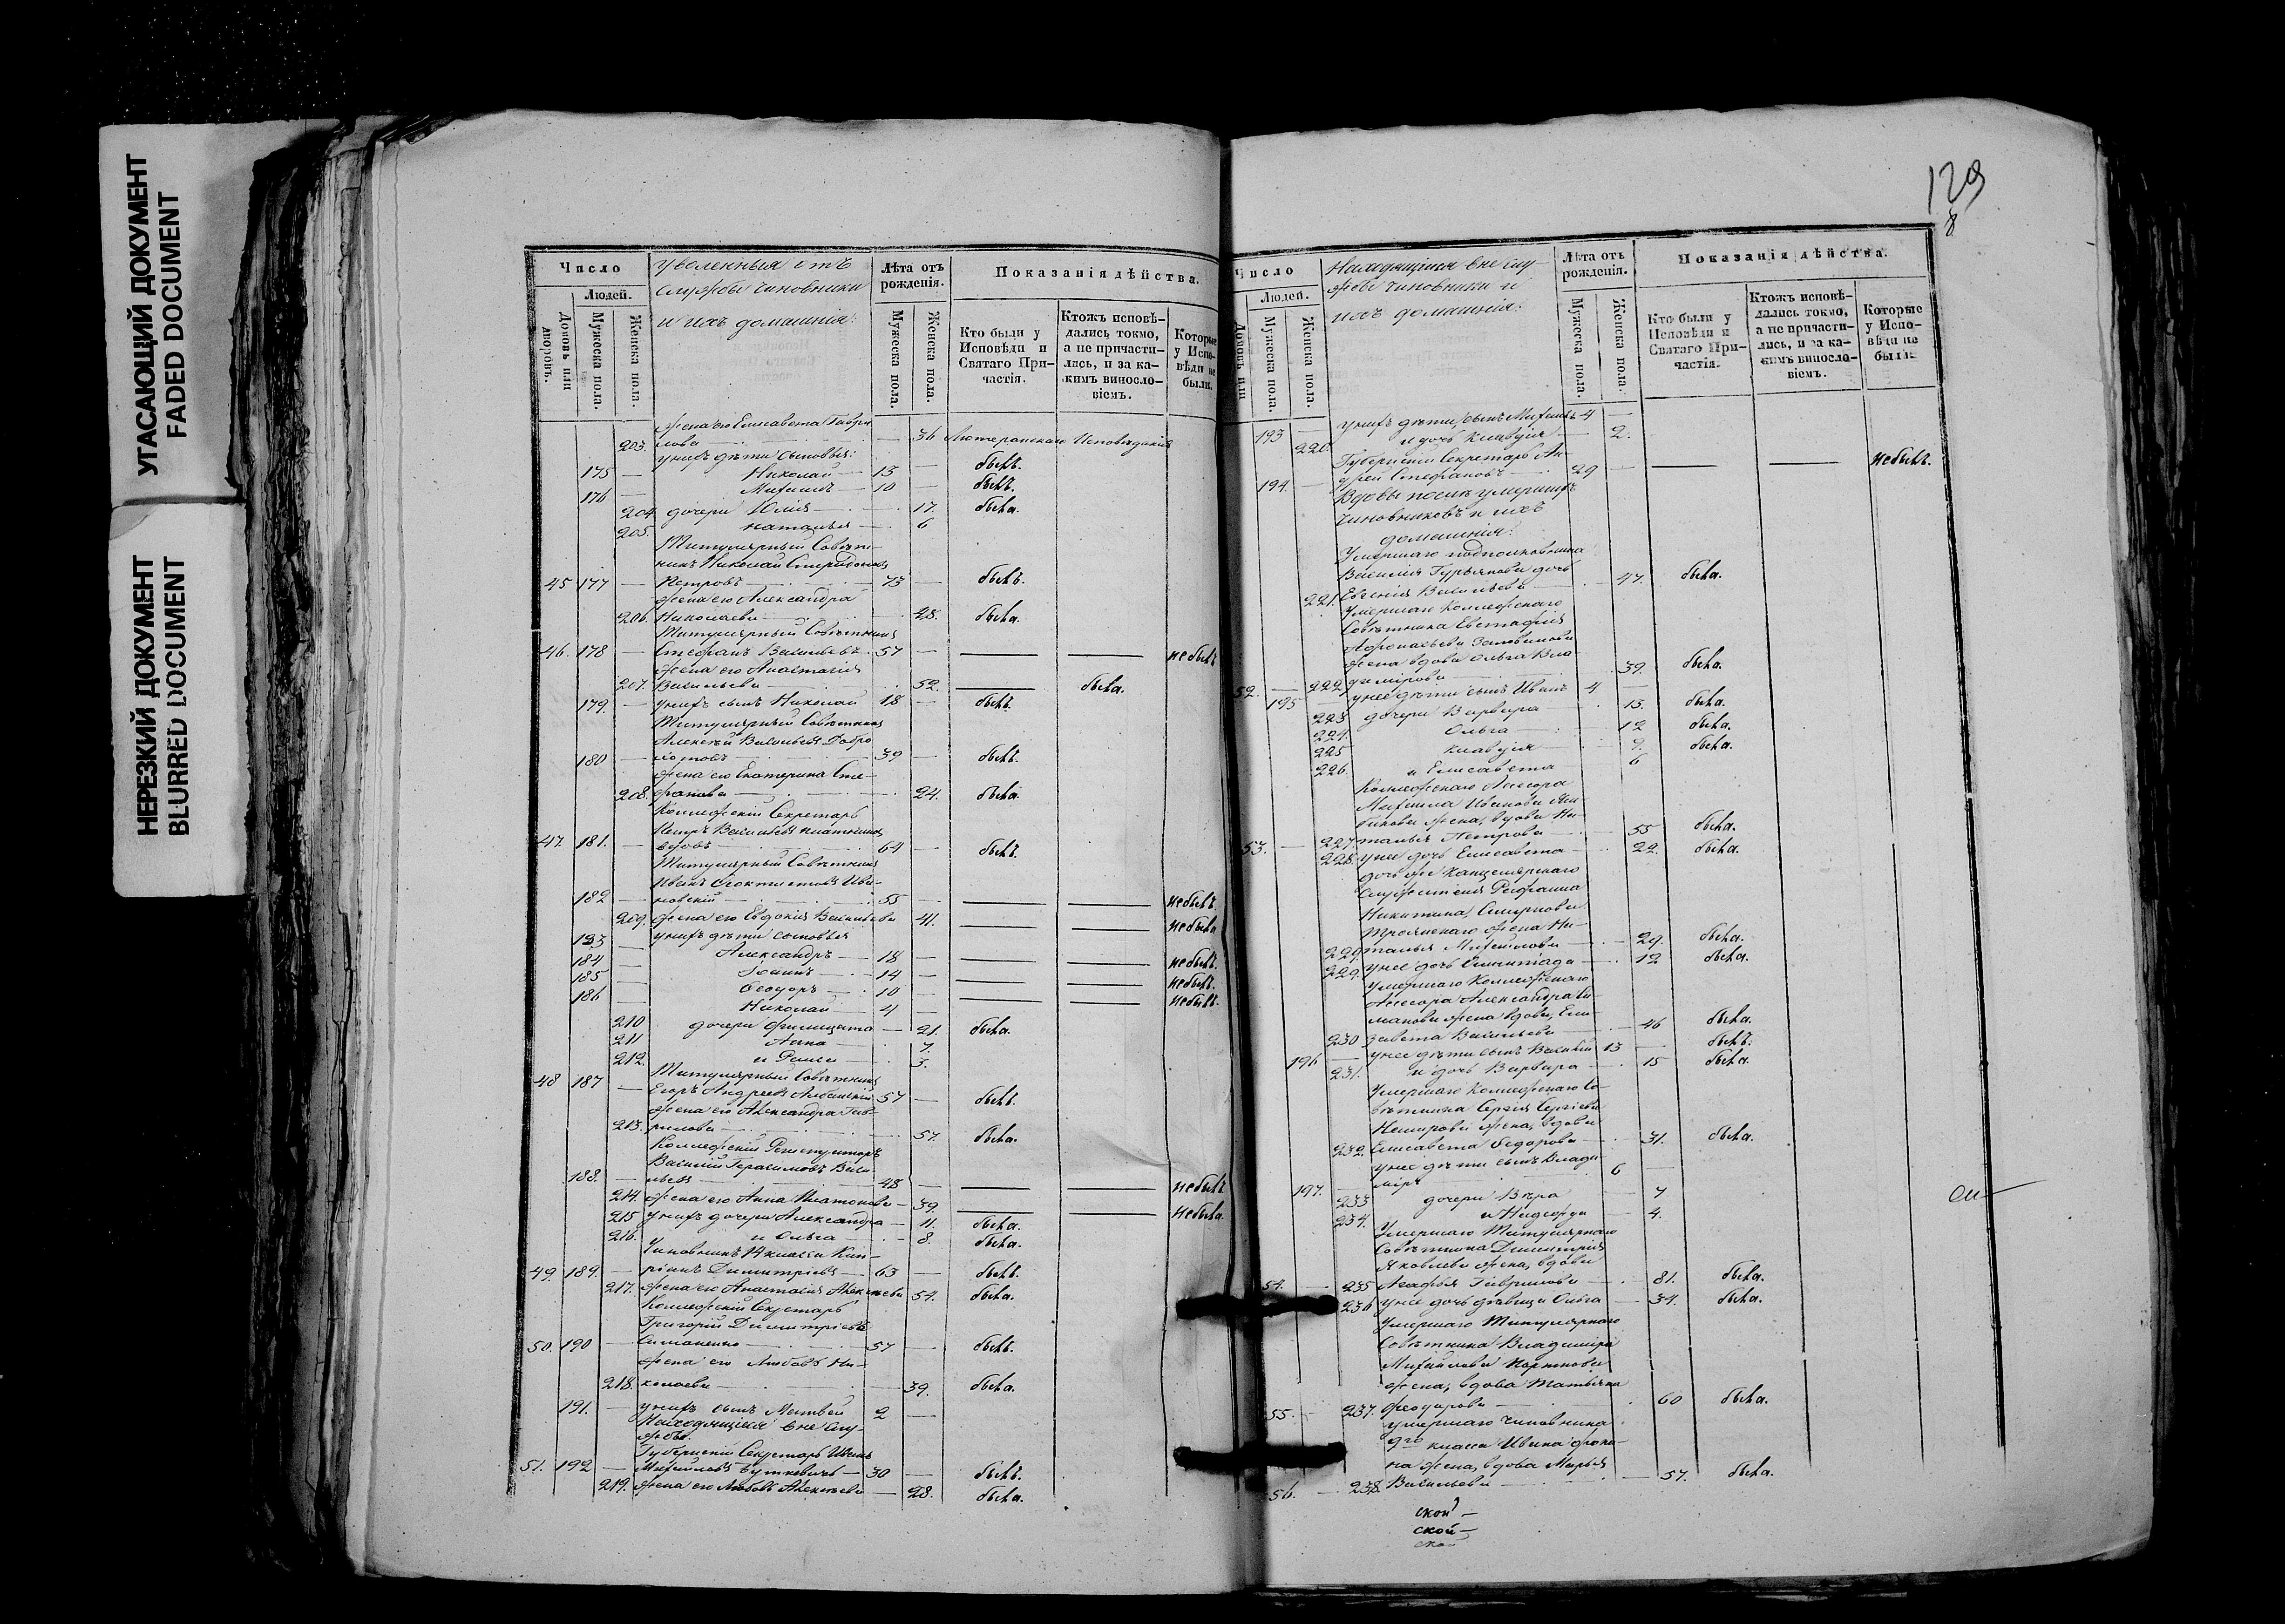 УГАСАЮЩИЙ ДОКУМЕНТ
FADED DOCUMENT
НЕРЕЗКИЙ ДОКУМЕНТ
BLURRED DOCUMENT
Число
Людей.
Домовъ или дворовъ.
Мужеска пола.
Женска пола.
уволенныя отъ
службы чиновники
и ихъ домашнія:
Лѣта отъ рожденія.
Мужеска пола.
Женска пола.
Показанія дѣйства.
Кто были у Исповѣди и Святаго Причастія.
Ктожъ исповѣдались токмо, а не причастились, и за какимъ винословіемъ.
Которые у Исповѣди не были.
жена его Елисавета Гаври
203. лова — 36 Лютеранскаго Исповѣданія
у нихъ дѣти сыновья:
175 — Николай — 13 — былъ.
176 — Михаилъ — 10 — былъ.
204 дочери Юлія — 17. была.
205. Наталья — 6
Титулярный Совѣт-
никъ Николай Спиридоновъ
45 177 — Петровъ — 73 — былъ.
жена его Александра
206. Николаева — 28. была.
Титулярный Совѣтникъ
46. 178 — Стефанъ Васильевъ 57 — — — не былъ
жена его Анастасія
207. Васильева — 52. — была.
179. — у нихъ сынъ Николай 18 — былъ.
Титулярный Совѣтникъ
Алексѣй Васильевъ Добро
180 — 39 — былъ.
жена его Екатерина Сте-
208. фанова — 24. была.
Коллежскій Секретарь
Петръ Васильевъ
47. 181. — 64 — былъ.
Титулярный Совѣтникъ
Иванъ Феоктистовъ Ива-
182 — новскій — 55 — — — не былъ.
209. жена его Евдокія Васильева 41. — — не была
183 — у нихъ дѣти сыновья
Александръ — 18 — — — не былъ.
184 — Іоаннъ — 14 — — — не былъ.
185 — Феодоръ — 10 — — — не былъ.
186 — Николай — 4 —
210 дочери — 21. была.
211 Анна — 7.
212. и Раиса — 3.
Титулярный Совѣтникъ
48 187 — Егоръ Андреевъ 57 — былъ.
жена его Александра Гав-
213. рилова — 57. была.
Коллежскій Регистраторъ
Василій Герасимовъ Васи-
188. — льевъ — 48 — — — не былъ
214. жена его Анна Платонова — 39. — — не была.
215 у нихъ дочери Александра — 11. была.
216. и Ольга — 8. была.
Чиновникъ 14 класса Кип-
49. 189. — ріанъ Димитріевъ — 63 — былъ.
217. жена его Анастасія Алексѣева 54. была.
Коллежскій Секретарь
Григорій Димитріевъ
50. 190 — Симоненко — 57 — былъ.
жена его Любовь Ни-
218. колаева — 39. была.
191. — у нихъ сынъ Матвей 2 —
Находящіеся внѣ слу-
жбы.
Губернскій Секретарь Иванъ
51. 192 — Михайловъ Буткевичъ — 30 — былъ.
219. жена его Любовь Алексѣева — 28. была.
129
8
Число
Людей.
Домовъ или
Мужеска пола.
Женска пола.
Находящіеся внѣ слу-
жбы чиновники и
ихъ домашнія:
Лѣта отъ рожденія.
Мужеска пола.
Женска пола.
Показанія дѣйства.
Кто были у Исповѣди и Святаго Причастія.
Ктожъ исповѣдались токмо, а не причастились, и за какимъ винословіемъ.
Которые у Исповѣди не были.
193 — у нихъ дѣти: сынъ Михаилъ 4 —
220. и дочь Клавдія — 2.
Губернскій Секретарь Ан-
194. — дрей Стефановъ — 29 — — — не былъ.
Вдовы послѣ умершихъ
чиновниковъ и ихъ
домашнія:
Умершаго подполковника
Василія Гурьянова дочь
221. Евгенія Васильева — 47. была.
Умершаго Коллежскаго
Совѣтника Евстафія
жена вдова Ольга Вла-
52. — 222 димірова — 39. была.
195 — у нее дѣти сынъ Иванъ 4 —
223 дочери Варвара — 13. была.
224. Ольга — 12 была.
225 Клавдія — 9. была.
226. и Елисавета 6
Коллежскаго Ассесора
Михаила Иванова
жена, вдова На-
53. — 227. талья Петрова — 55 была.
228. у нее дочь Елисавета — 22. была.
дочь же Канцелярскаго
Служителя
Никитина, Смирнова
Троянскаго жена На-
229. талья Михайлова — 29. была.
229. у нее дочь Олимпіада — 12 была.
умершаго Коллежскаго
Ассесора Александра Си-
манова жена вдова, Ели-
230 завета Васильева — 46 была.
196 — у нее дѣти сынъ Василій 13 — былъ.
231. и дочь Варвара — 15 была.
Умершаго Коллежскаго Со-
вѣтника Сергія Сергіева
жена, вдова
232. Елисавета Федорова — 31. была.
у нее дѣти сынъ Влади
197. — міръ 6 —
233 дочери Вѣра — 7
234. и Надежда — 4.
Умершаго Титулярнаго
Совѣтника Димитрія
Яковлева жена, вдова
54. — 235 Агафья Гаврилова — 81. была.
236 у нее дочь дѣвица Ольга — 34. была.
Умершаго Титулярнаго
Совѣтника Владиміра
Михайлова Портнова
жена, вдова Татьяна
55. — 237. Феодорова — 60 была.
умершаго чиновника
9го класса Ивана
жена, вдова Марья
56. — 238. Васильева — 57. была.
ской —
ской —
ской